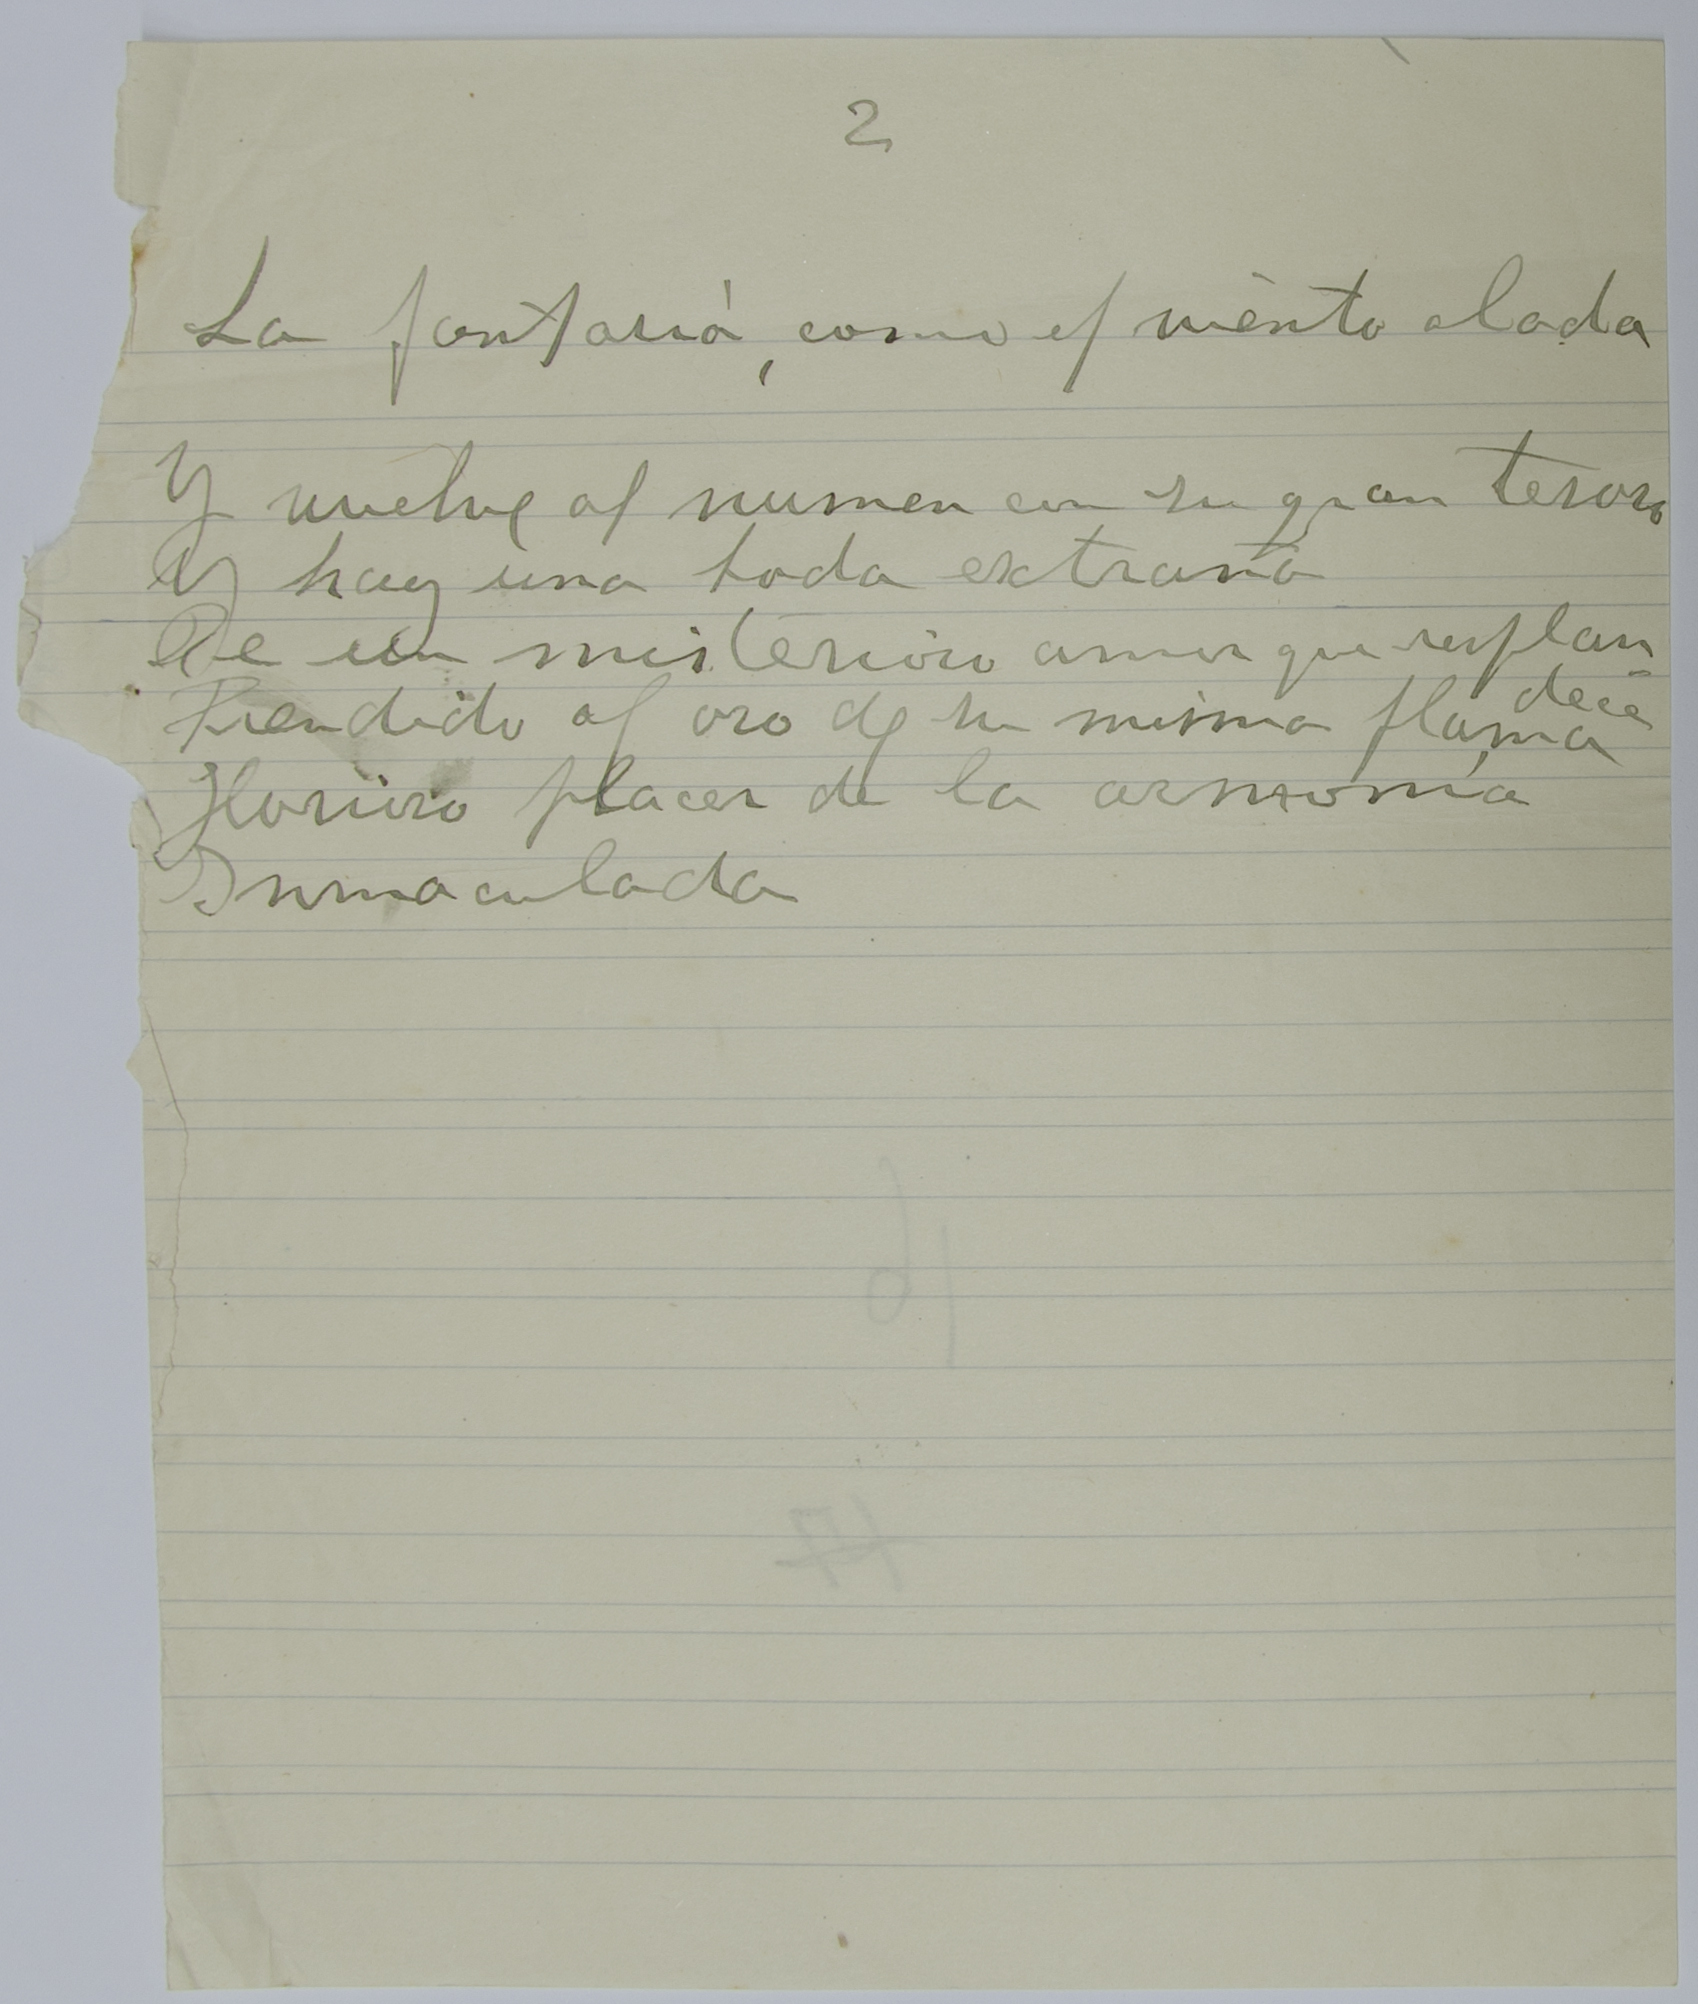 2
La fantasía, como el viento alada
Y vuelve al numen con su gran tesoro
Y hay una boda extraña
De un misterioso amor que resplan
dece
Prendido al oro de su misma flama
Glorioso placer de la armonía
Inmaculada
16
17